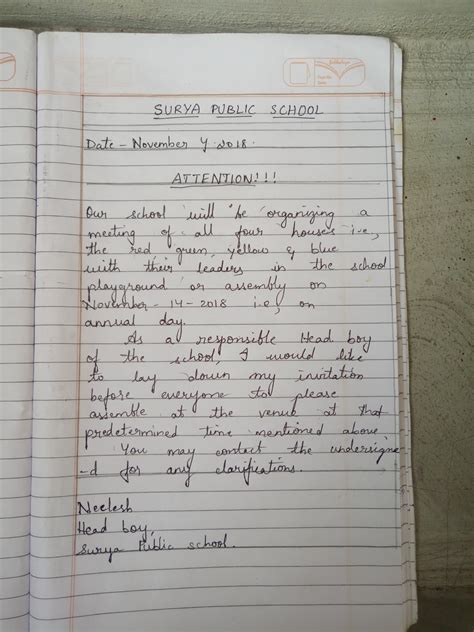 SURYA PUBLIC SCHOOL
Date - November 7 2018.
ATTENTION!!!
Our school will be organizing a
meeting of all four houses i.e,
the red green, yellow & blue
with their leaders in the school
playground or assembly on
November - 14 - 2018 i.e, on
annual day.
As a responsible Head boy
of the school, I would like
to lay down my invitation
before everyone to please
assemble at the venue at that
predetermined time mentioned above,
You may contact the undersigne
-d for any clarifications.
Neelesh
Head boy,
Surya Public school.